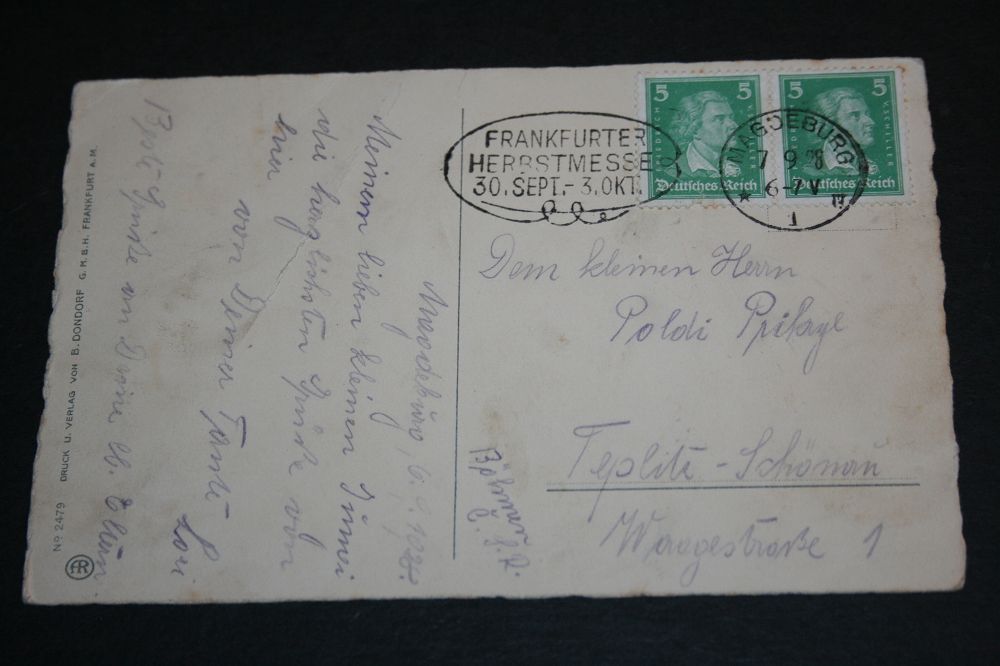 Magdeburg, 6.9.1928.
Meinem lieben kleinen
die herzlichsten Grüße von
hier
von Deiner Tante Lori
Beste Grüße an Deine lb. Eltern
FRANKFURTER
HERBSTMESSE
30. SEPT.- 3. OKT.
5 5
FRIEDRICH V. SCHILLER
Deutsches Reich
5 5
Deutsches Reich
MAGDEBURG
7.9.28
6-7 V
1
Dem kleinen Herrn
Poldi
Teplitz - Schönau
Waagestraße 1
Nº 2479 DRUCK U. VERLAG VON B. DONDORF G. M. B. H. FRANKFURT A. M.